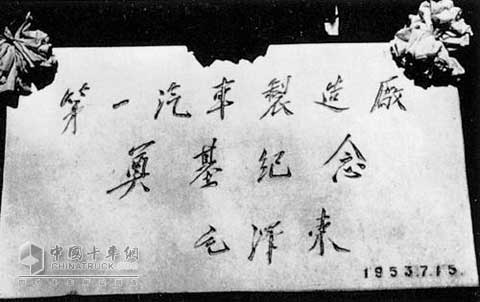 第一汽車製造廠
奠基紀念
毛澤东
1953.7.15.
中国卡车网
CHINATRUCK.ORG